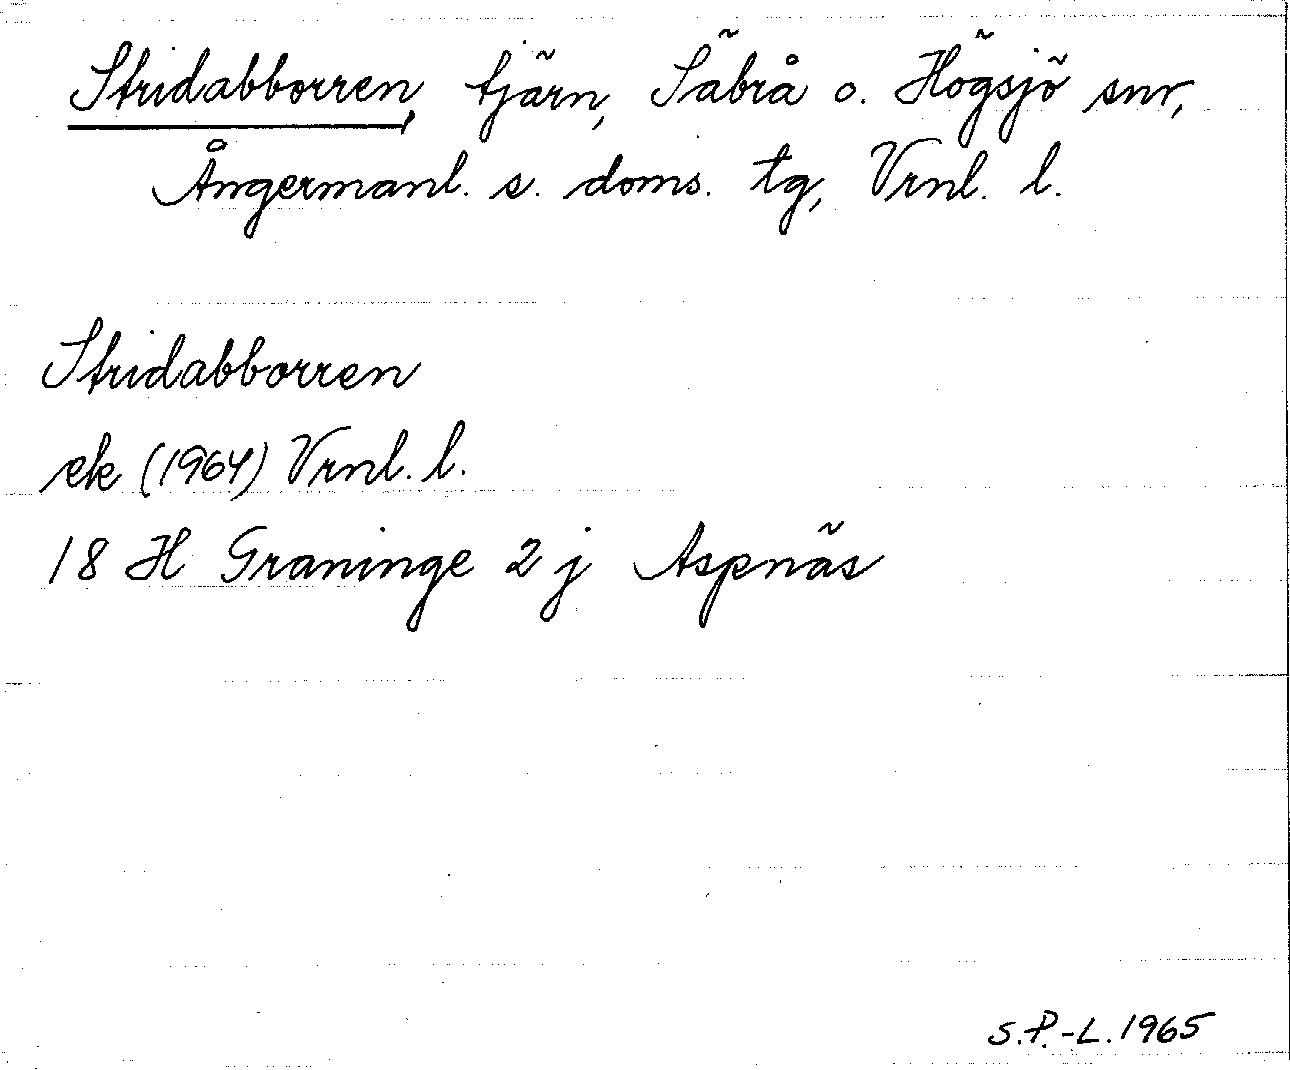 Stridabborren, tjärn, Säbrå o. Högsjö snr,
Ångermanl. s. doms. tg, Vrnl. l.
Stridabborren
ek (1964) Vrnl. l.
18 H Graninge 2 j Aspnäs
S.P.-L. 1965